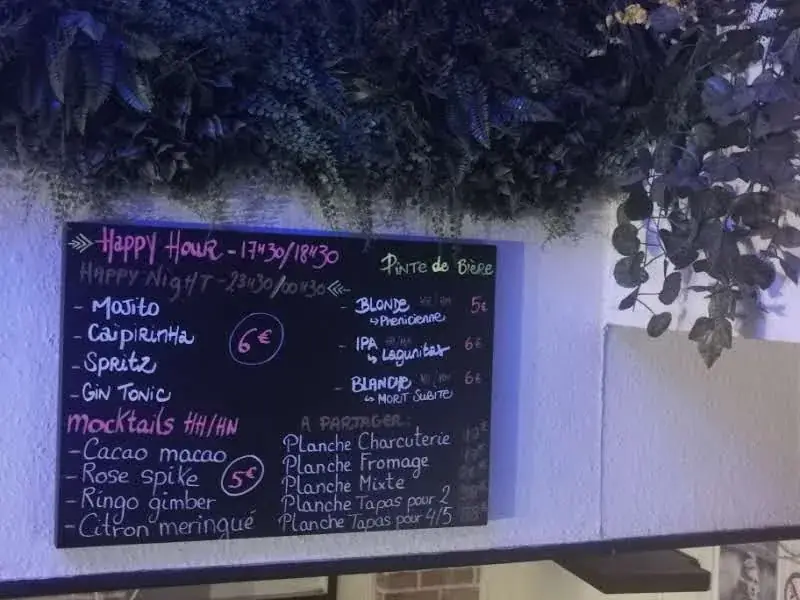 Happy Hour - 17H30/18H30
HAPPY NIGHT - 23H30/00H30
- Mojito
- Caïpirinha
- Spritz
- Gin Tonic
6€
Pinte de Bière
- BLONDE HH/HN 5€
↳ Phenicienne
- IPA HH/HN 6€
↳ Lagunitas
- BLANCHE HH/HN 6€
↳ MORT SUBITE
mocktails HH/HN
- Cacao macao
- Rose spike
- Ringo gimber
- Citron meringué
5€
A PARTAGER:
Planche Charcuterie
Planche Fromage
Planche Mixte
Planche Tapas pour 2
Planche Tapas pour 4/5